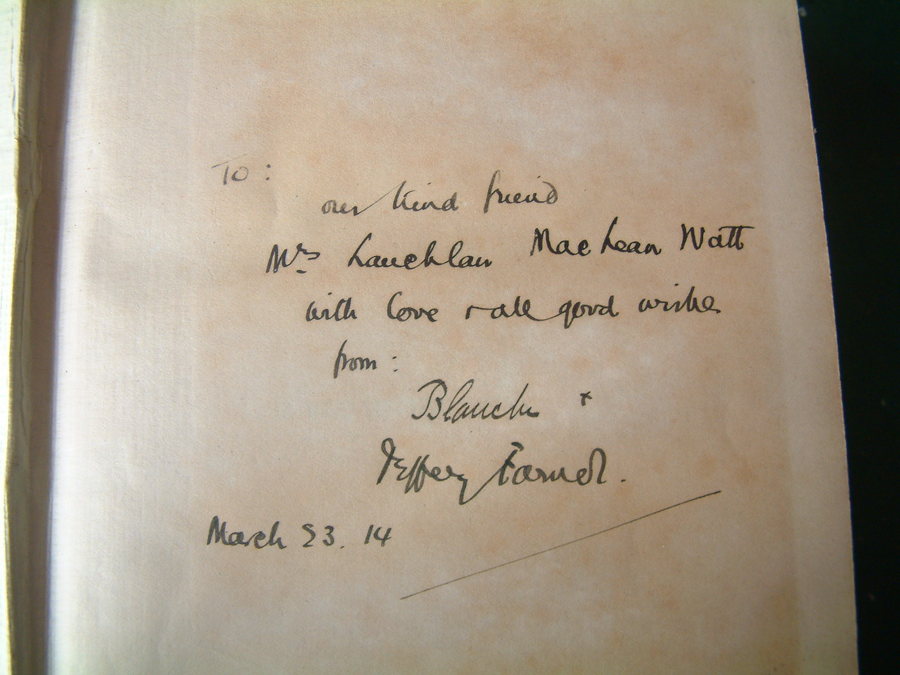 To:
our kind friend
Mrs Lauchlan MacLean Watt
with love & all good wishes
from:
Blanche +
Jeffery Farnol.
March 23. 14